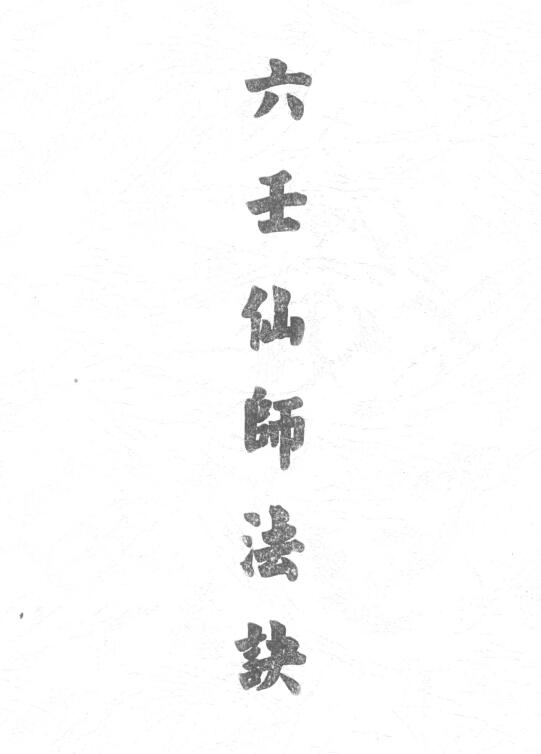 六壬仙師法訣